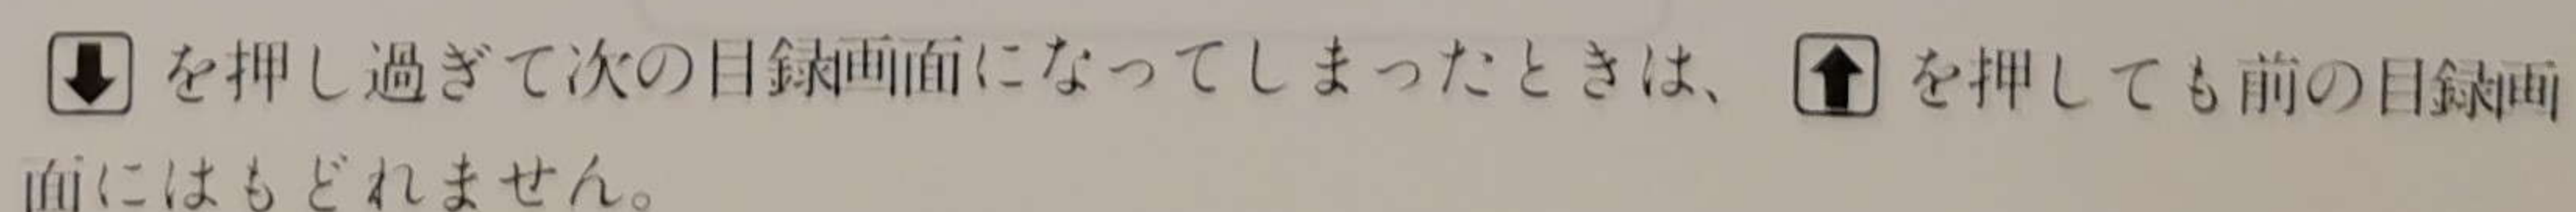 ⬇を押し過ぎて次の目録画面になってしまったときは、⬆を押しても前の目録画
面にはもどれません。